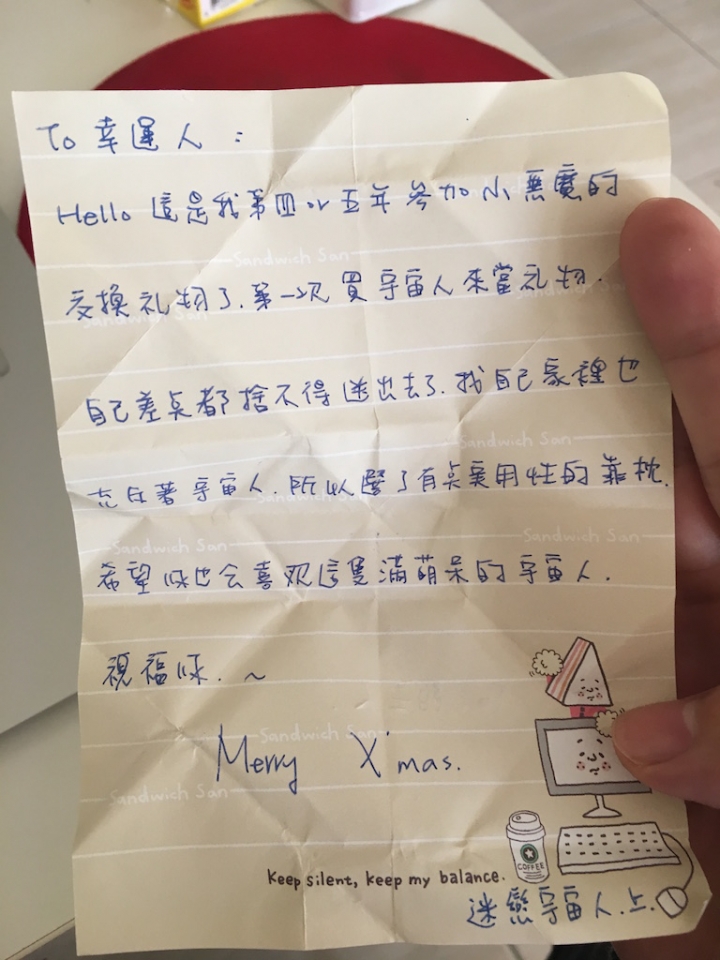 To 幸運人：
Hello 這是我第四or五年參加小惡魔的
Sandwich San
交換礼物了.第一次買宇宙人來當礼物.
Sandwich San
自己差点都捨不得送出去了.我自己家裡也
Sandwich San
著宇宙人.所以選了有点實用性的靠枕.
Sandwich San
Sandwich San
Sandwich San
希望你也会喜欢這隻滿萌呆的宇宙人.
祝福你.～
Sandwich San
Merry X'mas.
Sandwich San
COFFEE
Keep silent, keep my balance.
迷戀宇宙人.上.